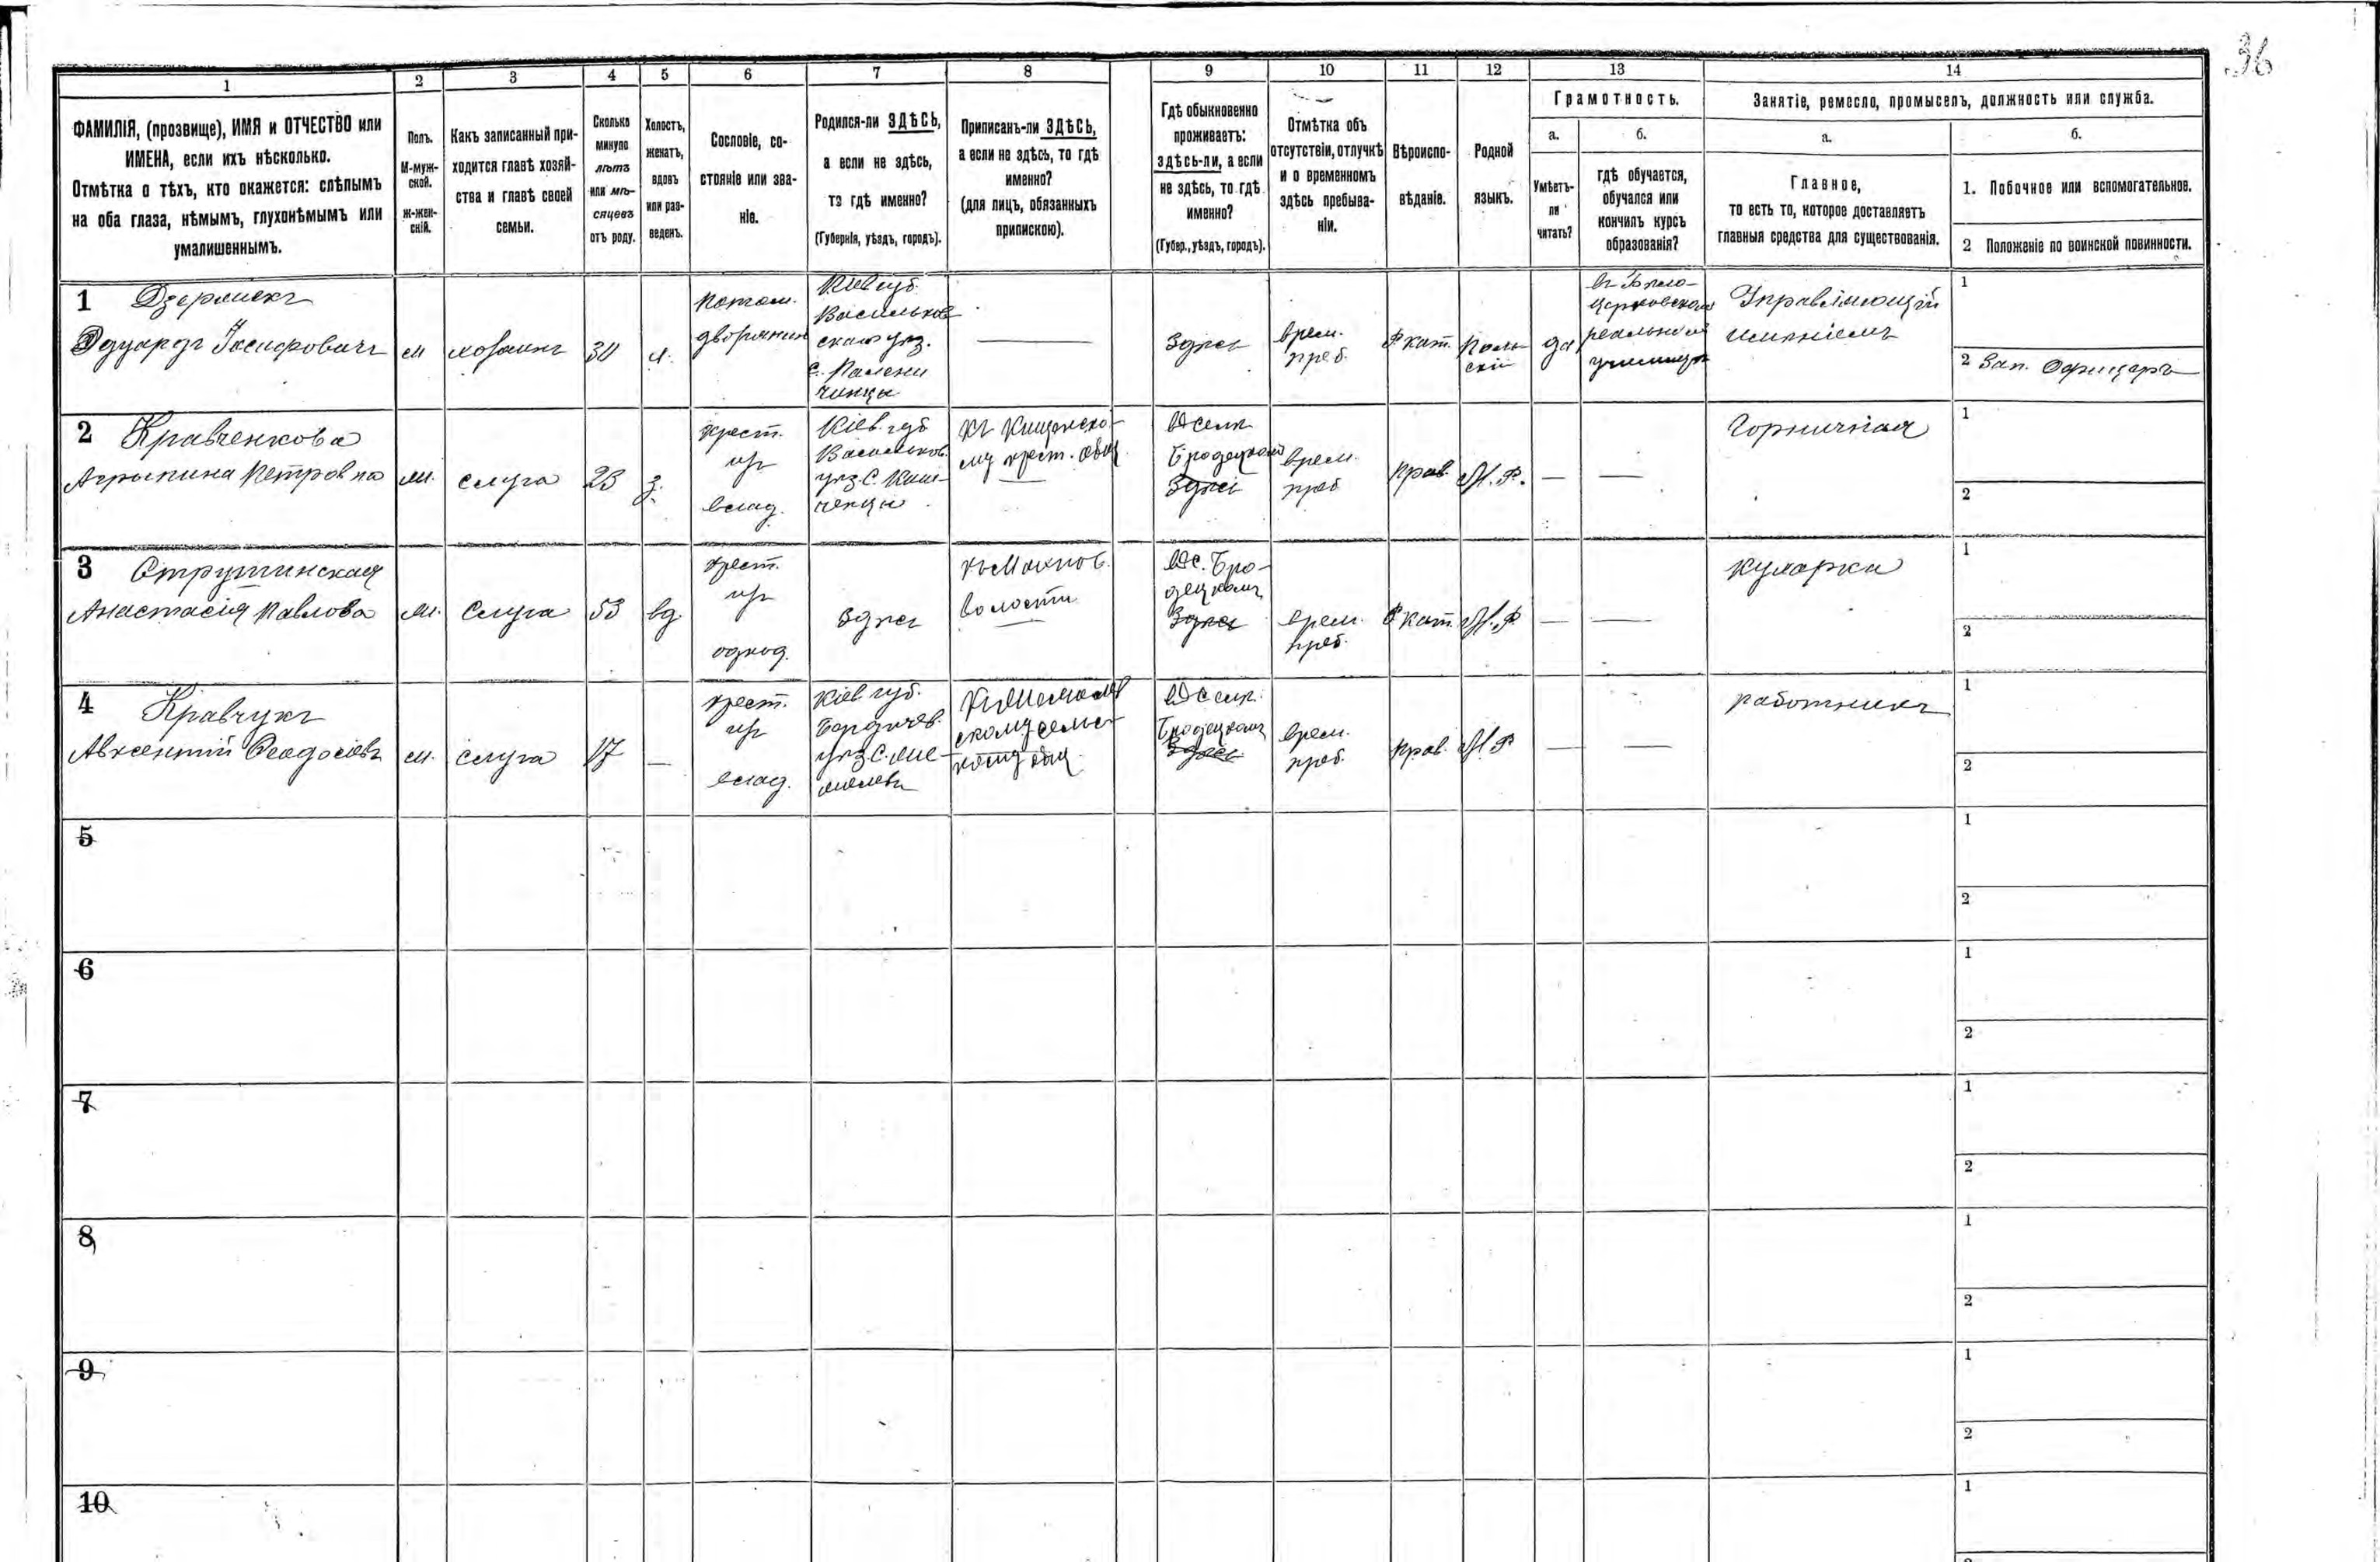 36
1
2
3
4
5
6
7
8
9
10
11
12
13
14
ФАМИЛІЯ, (прозвище), ИМЯ и ОТЧЕСТВО или
ИМЕНА, если ихъ нѣсколько.
Отмѣтка о тѣхъ, кто окажется: слѣпымъ
на оба глаза, нѣмымъ, глухонѣмымъ или
умалишеннымъ.
Полъ.
М-муж-
ской.
Ж-жен-
скій.
Какъ записанный при-
ходится главѣ хозяй-
ства и главѣ своей
семьи.
Сколько
минуло
лѣтъ
или мѣ-
сяцевъ
отъ роду.
Холостъ,
женатъ,
вдовъ
или раз-
веденъ.
Сословіе, со-
стояніе или зва-
ніе.
Родился-ли ЗДѢСЬ,
а если не здѣсь,
то гдѣ именно?
(Губернія, уѣздъ, городъ).
Приписанъ-ли ЗДѢСЬ,
а если не здѣсь, то гдѣ
именно?
(для лицъ, обязанныхъ
припискою).
Гдѣ обыкновенно
проживаетъ:
здѣсь-ли, а если
не здѣсь, то гдѣ
именно?
(Губер., уѣздъ, городъ).
Отмѣтка объ
отсутствіи, отлучкѣ
и о временномъ
здѣсь пребыва-
ніи.
Вѣроиспо-
вѣданіе.
Родной
языкъ.
Грамотность.
а.
Умѣетъ-
ли
читать?
б.
гдѣ обучается,
обучался или
кончилъ курсъ
образованія?
Занятіе, ремесло, промыселъ, должность или служба.
а.
Главное,
то есть то, которое доставляетъ
главныя средства для существованія.
б.
1. Побочное или вспомогательное.
2 Положеніе по воинской повинности.
1
Эдуардъ Іосифовичъ
м
хозяинъ
30
потом.
дворянинъ
Кіев губ.
Васильков
скаго уѣз.
здѣсь
врем.
преб.
Р. кат.
Поль
скій
да
въ Бѣло-
церковскомъ
реальномъ
училищѣ
Управляющій
имѣніемъ
1
2 Зап. Офицеръ
2 Кравченкова
Агрипина Петровна
слуга
23
з.
крест.
изъ
влад.
Кіев. губ
Васильков.
уѣз. С.
Бродецкомъ
Здѣсь
врем.
преб
прав
М. Р.
—
—
Горничная
1
2
3 Струтинская
Анастасія Павлова
слуга
53
вд
крест.
изъ
однод.
здѣсь
къ Махнов.
волости
Въ с. Бро-
децкомъ
Здѣсь
врем.
преб.
Р кат.
М. Р.
—
—
кухарка
1
2
4 Кравчукъ
Авксентій Феодосіевъ
м.
слуга
17
—
крест.
изъ
влад.
Кіев губ.
Бердичев.
уѣз. С.
Бродецкомъ
Здѣсь
врем.
преб.
прав.
М. Р
—
—
работникъ
1
2
5
1
2
6
1
2
7
1
2
8
1
2
9
1
2
10
1